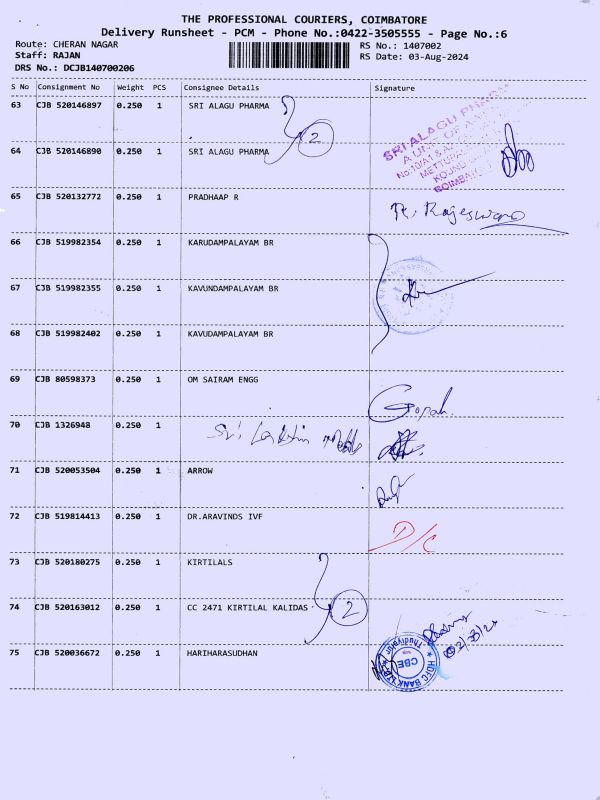 THE PROFESSIONAL COURIERS, COIMBATORE
Delivery Runsheet - PCM - Phone No.:0422-3505555 - Page No.:6
Route: CHERAN NAGAR
RS No.: 1407002
Staff: RAJAN
RS Date: 03-Aug-2024
DRS No.: DCJB140700206
S No Consignment No Weight PCS Consignee Details Signature
63 CJB 520146897 0.250 1 SRI ALAGU PHARMA
2
SRI ALAGU PHARMA
64 CJB 520146890 0.250 1 SRI ALAGU PHARMA
65 CJB 520132772 0.250 1 PRADHAAP R
R. Rajeswari
66 CJB 519982354 0.250 1 KARUDAMPALAYAM BR
67 CJB 519982355 0.250 1 KAVUNDAMPALAYAM BR
68 CJB 519982402 0.250 1 KAVUDAMPALAYAM BR
69 CJB 80598373 0.250 1 OM SAIRAM ENGG
Gopal.
70 CJB 1326948 0.250 1
Sri
71 CJB 520053504 0.250 1 ARROW
72 CJB 519814413 0.250 1 DR.ARAVINDS IVF
D/C
73 CJB 520180275 0.250 1 KIRTILALS
74 CJB 520163012 0.250 1 CC 2471 KIRTILAL KALIDAS
2
75 CJB 520036672 0.250 1 HARIHARASUDHAN
HDFC BANK
CBE